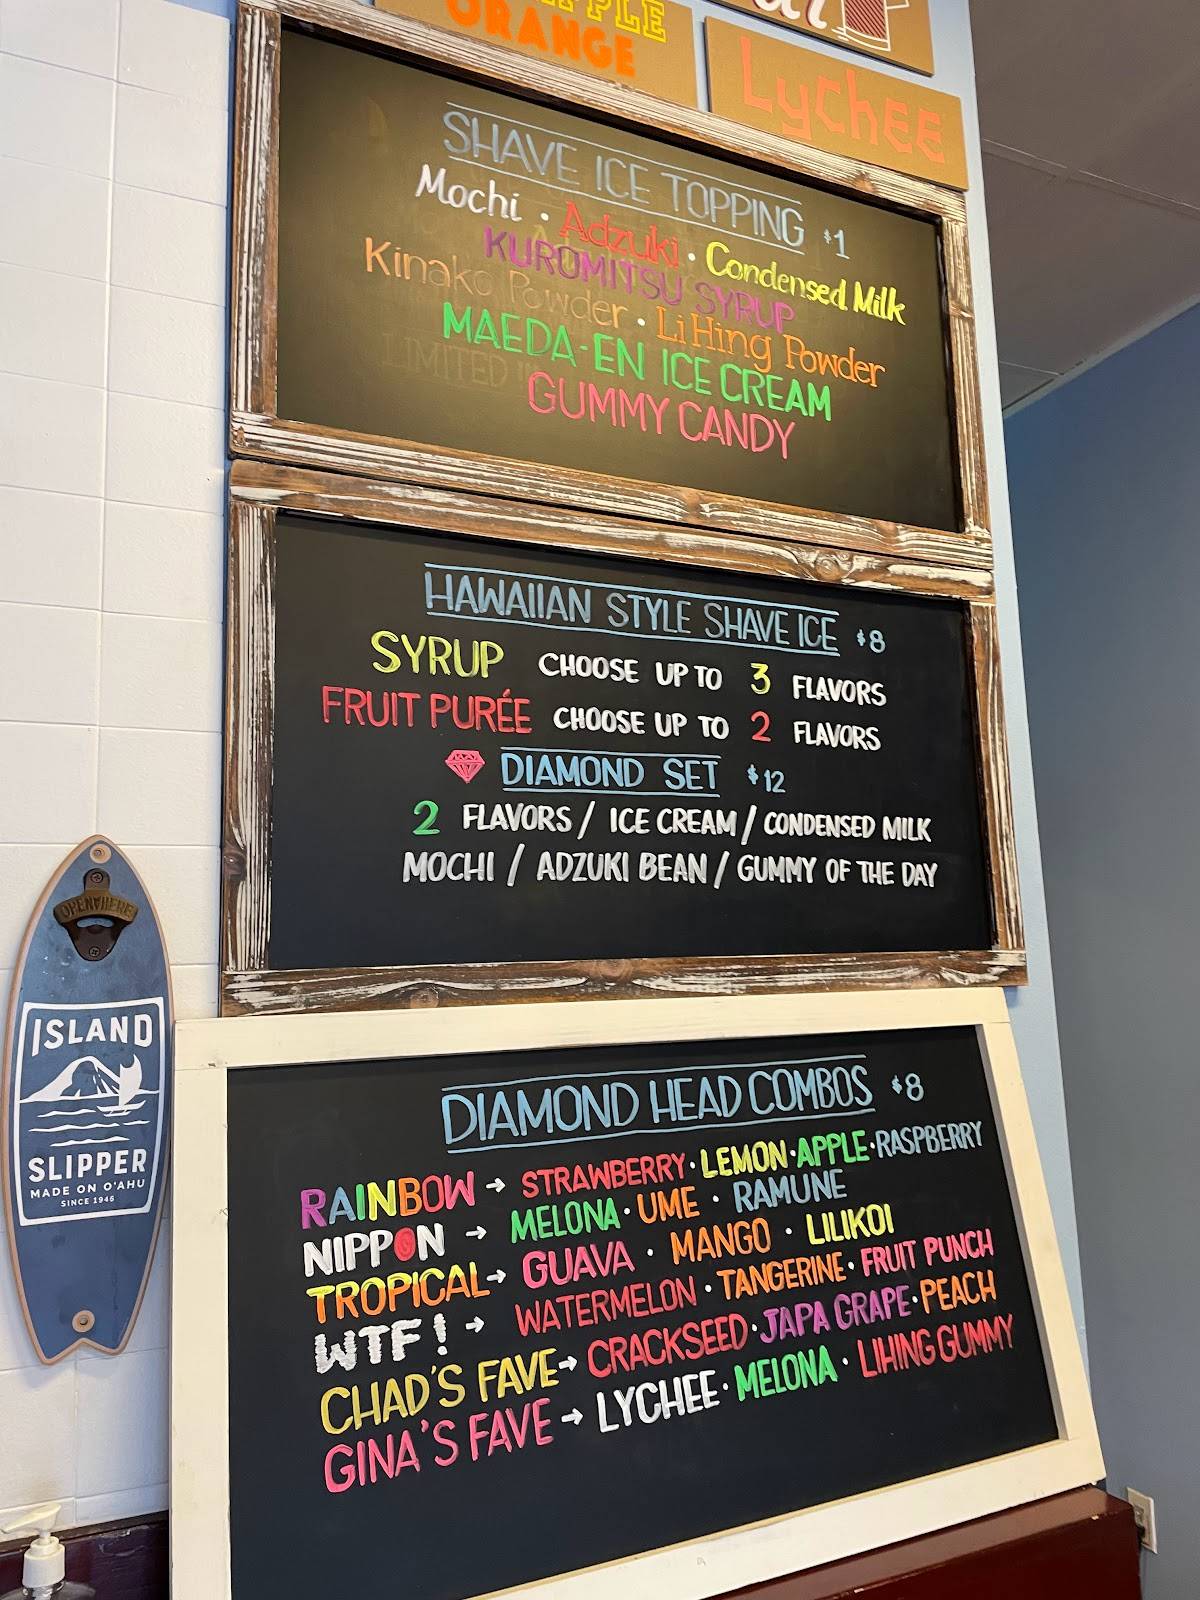 ORANGE
Lychee
SHAVE ICE TOPPING $1
Mochi · Adzuki · Condensed Milk
KUROMITSU SYRUP
Kinako Powder · LiHing Powder
MAEDA-EN ICE CREAM
GUMMY CANDY
LIMITED
HAWAIIAN STYLE SHAVE ICE $8
SYRUP CHOOSE UP TO 3 FLAVORS
FRUIT PURÉE CHOOSE UP TO 2 FLAVORS
DIAMOND SET $12
2 FLAVORS / ICE CREAM / CONDENSED MILK
MOCHI / ADZUKI BEAN / GUMMY OF THE DAY
OPEN HERE
ISLAND
SLIPPER
MADE ON O'AHU
SINCE 1946
DIAMOND HEAD COMBOS $8
RAINBOW → STRAWBERRY · LEMON · APPLE · RASPBERRY
NIPPON → MELONA · UME · RAMUNE
TROPICAL → GUAVA · MANGO · LILIKOI
WTF! → WATERMELON · TANGERINE · FRUIT PUNCH
CHAD'S FAVE → CRACKSEED · JAPA GRAPE · PEACH
GINA'S FAVE → LYCHEE · MELONA · LIHING GUMMY